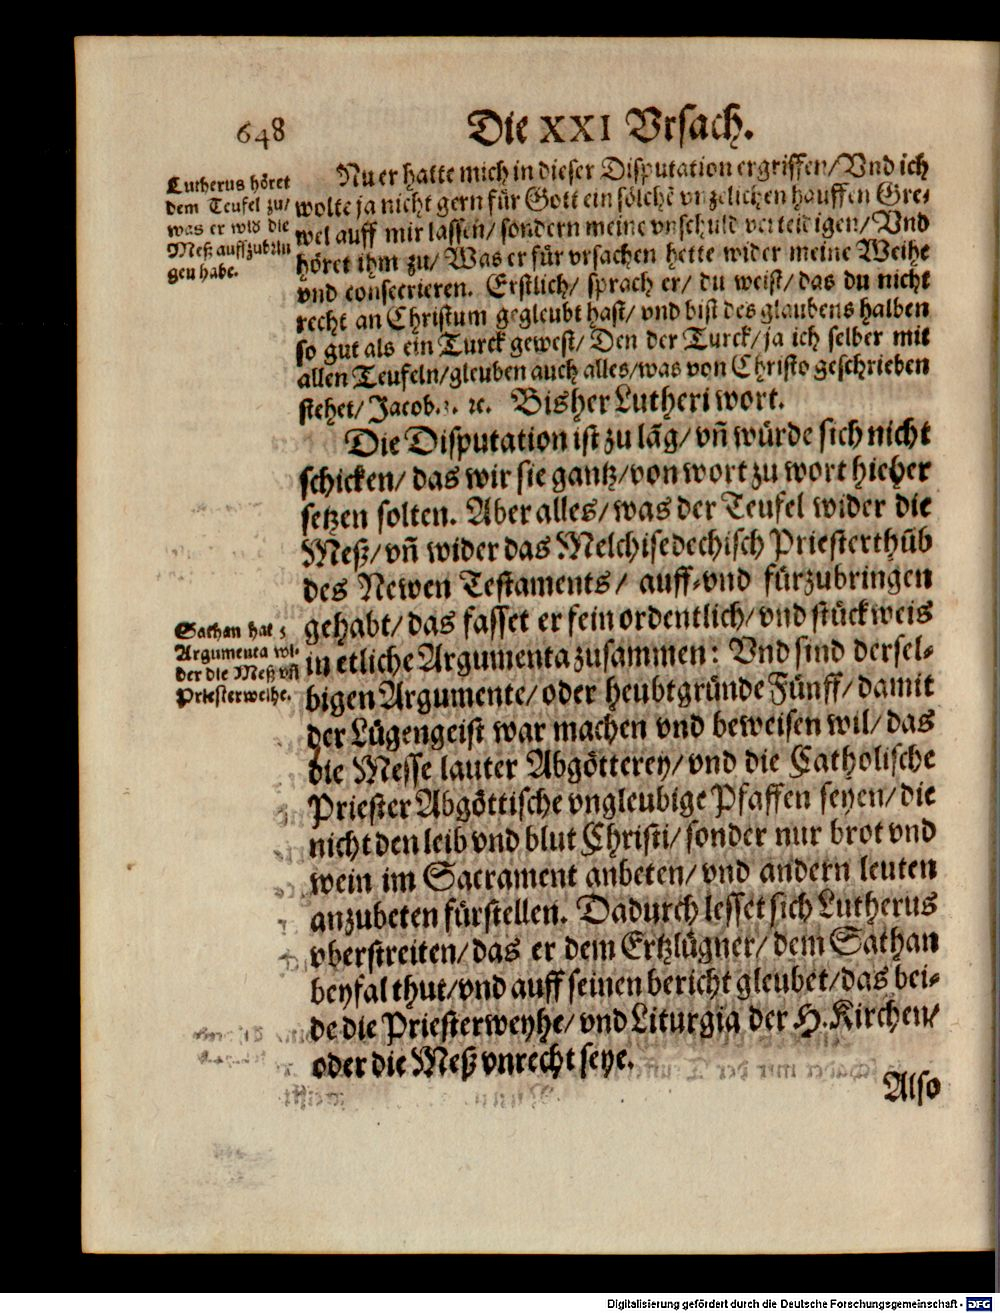 648
Die XXI Vrsach.
Lutherus höret
dem Teufel zu/
was er wid die
Meß auffzubrin
gen habe.
Nu er hatte mich in dieser Disputation ergriffen/ Vnd ich
wolte ja nicht gern für Gott ein sölchē vnzelichen hauffen Gre-
wel auff mir lassen/ sondern meine vnschuld verteidigen/ Vnd
höret ihm zu/ Was er für vrsachen hette wider meine Weihe
vnd consecrieren. Erstlich/ sprach er/ du weist/ das du nicht
recht an Christum gegleubt hast/ vnd bist des glaubens halben
so gut als ein Turck gewest/ Den der Turck/ ja ich selber mit
allen Teufeln/ gleuben auch alles/ was von Christo geschrieben
stehet/ Jacob. ꝛc. Bisher Lutheri wort.
Die Disputation ist zu lāg/ vñ würde sich nicht
schicken/ das wir sie gantz/ von wort zu wort hieher
setzen solten. Aber alles/ was der Teufel wider die
Meß/ vñ wider das Melchisedechisch Priesterthūb
des Newen Testaments/ auff-vnd fürzubringen
gehabt/ das fasset er fein ordentlich/ vnd stückweis
in etliche Argumenta zusammen: Vnd sind dersel-
bigen Argumente/ oder heubtgründe Fünff/ damit
der Lügengeist war machen vnd beweisen wil/ das
die Messe lauter Abgötterey/ vnd die Catholische
Priester Abgöttische vngleubige Pfaffen seyen/ die
nicht den leib vnd blut Christi/ sonder nur brot vnd
wein im Sacrament anbeten/ vnd andern leuten
anzubeten fürstellen. Dadurch lesset sich Lutherus
vberstreiten/ das er dem Ertzlügner/ dem Sathan
beyfal thut/ vnd auff seinen bericht gleubet/ das bei-
de die Priesterweyhe/ vnd Liturgia der H. Kirchen/
oder die Meß vnrecht seye.
Sathan hat 5
Argumenta wi-
der die Meß vñ
Priesterweihe.
Also
Digitalisierung gefördert durch die Deutsche Forschungsgemeinschaft - DFG